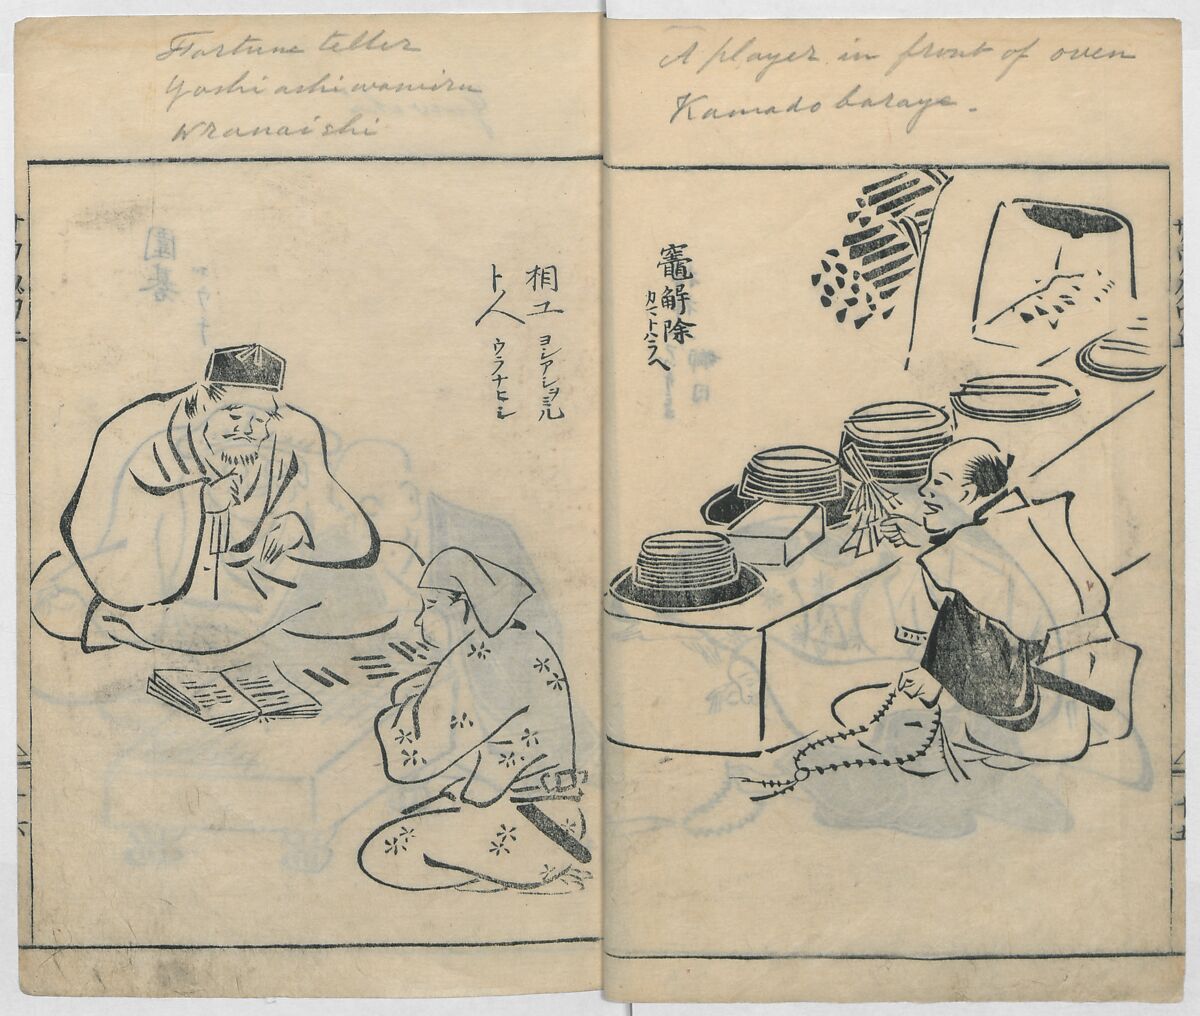 Fortune teller
Yoshi ashi wo miru
Uranaishi
A player in front of oven
Kamado baraye.
竈解除
カマトハラヘ
相工
ヨシアシヲミル
卜人
ウラナヒシ
圍碁